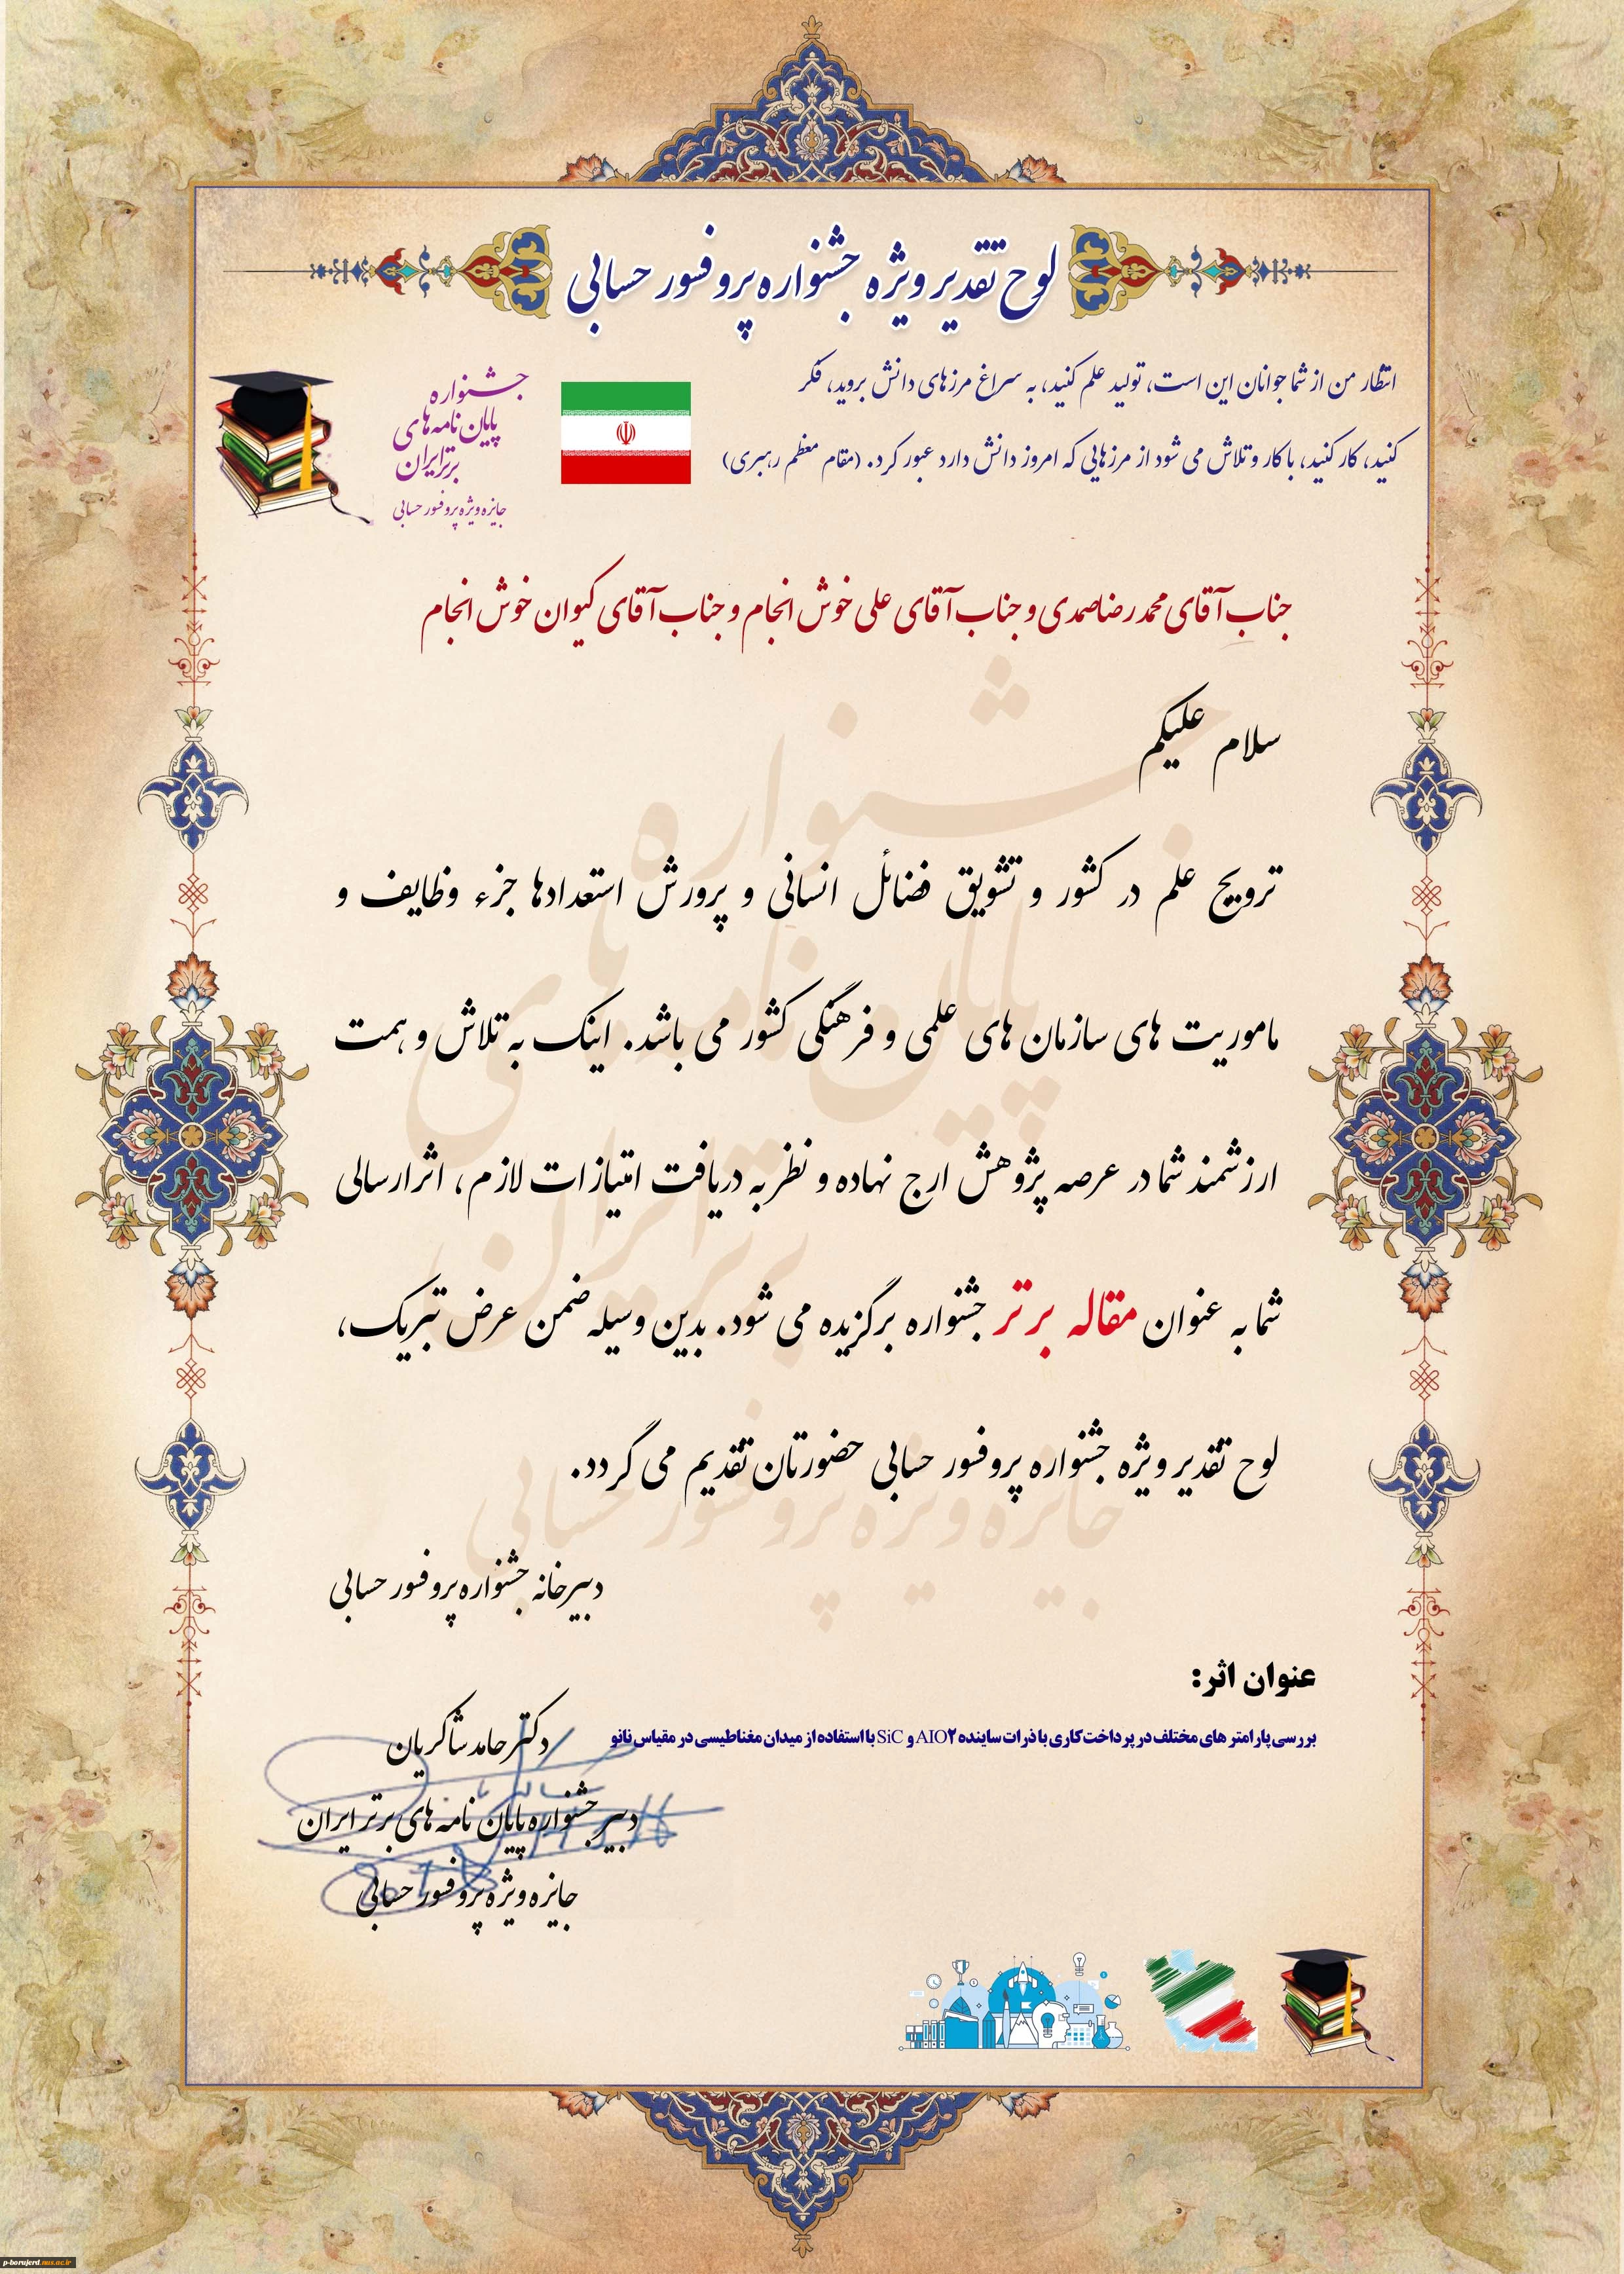 لوح تقدیر ویژه جشنواره پروفسور حسابی
انتظار من از شما جوانان این است، تولید علم کنید، به سراغ مرزهای دانش بروید، فکر
کنید، کار کنید، با کار و تلاش می شود از مرزهایی که امروز دانش دارد عبور کرد. (مقام معظم رهبری)
جشنواره
پایان نامه‌های
برتر ایران
جایزه ویژه پروفسور حسابی
جناب آقای محمدرضا صمدی و جناب آقای علی خوش انجام و جناب آقای کیوان خوش انجام
سلام علیکم
ترویج علم در کشور و تشویق فضائل انسانی و پرورش استعدادها جزء وظایف و
ماموریت های سازمان های علمی و فرهنگی کشور می باشد. اینک به تلاش و همت
ارزشمند شما در عرصه پژوهش ارج نهاده و نظر به دریافت امتیازات لازم، اثر ارسالی
شما به عنوان مقاله برتر جشنواره برگزیده می شود. بدین وسیله ضمن عرض تبریک،
لوح تقدیر ویژه جشنواره پروفسور حسابی حضورتان تقدیم می گردد.
دبیرخانه جشنواره پروفسور حسابی
عنوان اثر:
بررسی پارامتر های مختلف در پرداخت کاری با ذرات ساینده AlO۲ و SiC با استفاده از میدان مغناطیسی در مقیاس نانو
دکتر حامد شاکریان
دبیر جشنواره پایان نامه های برتر ایران
جایزه ویژه پروفسور حسابی
جشنواره
پایان نامه های
برتر ایران
جایزه ویژه پروفسور حسابی
p-borujerd.nus.ac.ir